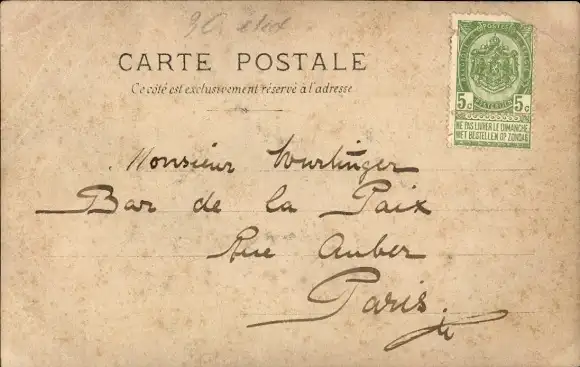 CARTE POSTALE
Ce côté est exclusivement réservé à l'adresse
POSTES
5c 5c
POSTERIJEN
NE PAS LIVRER LE DIMANCHE
NIET BESTELLEN OP ZONDAG
Monsieur Wurlinger
Bar de la Paix
Rue Auber
Paris.